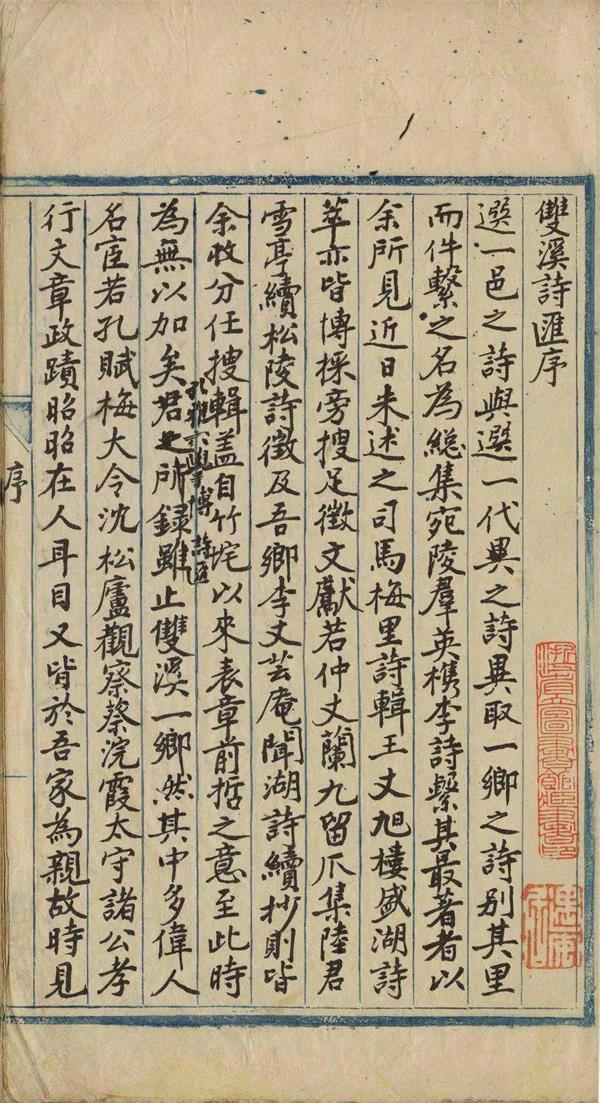 雙溪詩匯序
選一邑之詩與選一代異之詩異取一鄉之詩別其里
而件繫之名為總集宛陵羣英檇李詩繫其最著者以
余所見近日朱述之司馬梅里詩輯王丈旭樓盛湖詩
萃亦皆博採旁搜足徵文獻若仲丈蘭九留爪集陸君
雪亭續松陵詩徵及吾鄉李丈芸庵聞湖詩續抄則皆
余收分任搜輯蓋自竹垞以來表章前哲之意至此時
為無以加矣君之所錄雖止雙溪一鄉然其中多偉人
學博
名宦若孔賦梅大令沈松廬觀察蔡浣霞太守諸公孝
行文章政蹟昭昭在人耳目又皆於吾家為親故時見
序
浙江圖書館藏書印